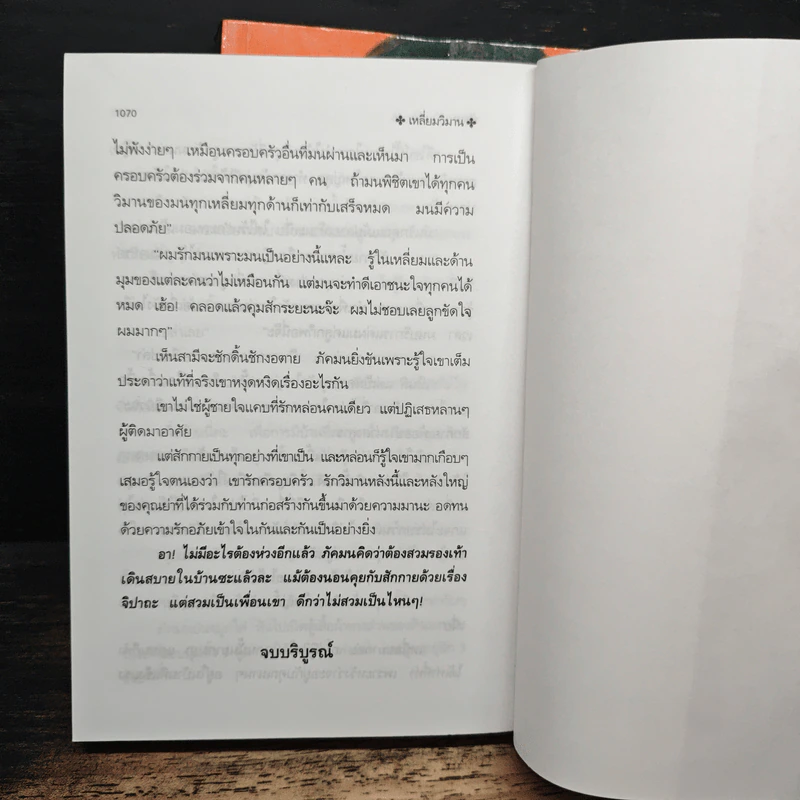 1070
✤ เหลี่ยมวิมาน ✤
ไม่พังง่ายๆ เหมือนครอบครัวอื่นที่มนผ่านและเห็นมา การเป็น
ครอบครัวต้องร่วมจากคนหลายๆ คน ถ้ามนพิชิตเขาได้ทุกคน
วิมานของมนทุกเหลี่ยมทุกด้านก็เท่ากับเสร็จหมด มนมีความ
ปลอดภัย”
“ผมรักมนเพราะมนเป็นอย่างนี้แหละ รู้ในเหลี่ยมและด้าน
มุมของแต่ละคนว่าไม่เหมือนกัน แต่มนจะทำดีเอาชนะใจทุกคนได้
หมด เฮ้อ! คลอดแล้วคุมสักระยะนะจ๊ะ ผมไม่ชอบเลยลูกขัดใจ
ผมมากๆ”
เห็นสามีจะชักดิ้นชักงอตาย ภัคมนยิ่งขันเพราะรู้ใจเขาเต็ม
ประดาว่าแท้ที่จริงเขาหงุดหงิดเรื่องอะไรกัน
เขาไม่ใช่ผู้ชายใจแคบที่รักหล่อนคนเดียว แต่ปฏิเสธหลานๆ
ผู้ติดมาอาศัย
แต่สักกายเป็นทุกอย่างที่เขาเป็น และหล่อนก็รู้ใจเขามากเกือบๆ
เสมอรู้ใจตนเองว่า เขารักครอบครัว รักวิมานหลังนี้และหลังใหญ่
ของคุณย่าที่ได้ร่วมกับท่านก่อสร้างกันขึ้นมาด้วยความมานะ อดทน
ด้วยความรักอภัยเข้าใจในกันและกันเป็นอย่างยิ่ง
อา! ไม่มีอะไรต้องห่วงอีกแล้ว ภัคมนคิดว่าต้องสวมรองเท้า
เดินสบายในบ้านซะแล้วละ แม้ต้องนอนคุยกับสักกายด้วยเรื่อง
จิปาถะ แต่สวมเป็นเพื่อนเขา ดีกว่าไม่สวมเป็นไหนๆ!
จบบริบูรณ์